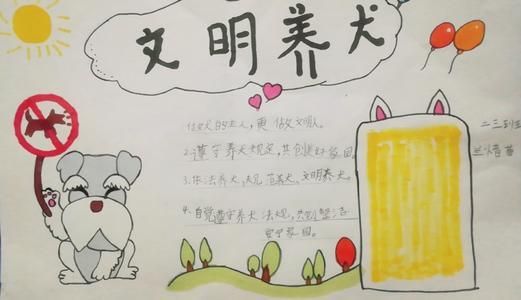 文明养犬
做文明的主人,更做文明人。
2.遵守养犬规定,共创美好家园
3.依法养犬,规范养犬、文明养犬。
4.自觉遵守养犬法规,共创整洁
安宁家园。
二三班